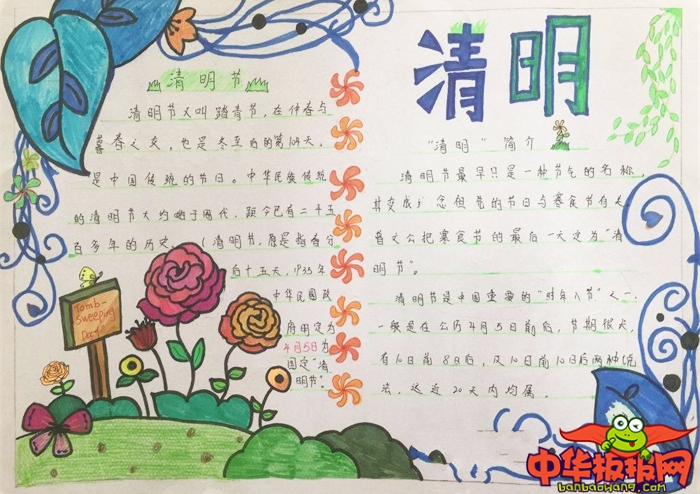 清明节
清明节又叫踏青节,在仲春与
暮春之交,也是冬至后的第104天,
是中国传统的节日。中华民族传统
的清明节大约始于周代,距今已有二千五
百多年的历史。(清明节,原是指春分
后十五天,1935年
中华民国政
府明定为
4月5日为
国定"清
明节"。
Tomb-
Sweeping
Day
清明
"清明"简介
清明节最早只是一种节气的名称,
其变成纪念祖先的节日与寒食节有关
晋文公把寒食节的最后一天定为"清
明节"。
清明节是中国重要的"时年八节"之一,
一般是在公历4月5日前后,节期很长,
有10日前8日后,及10日前10日后两种说
法,这近20天内均属。
中华板报网
banbaowang.com